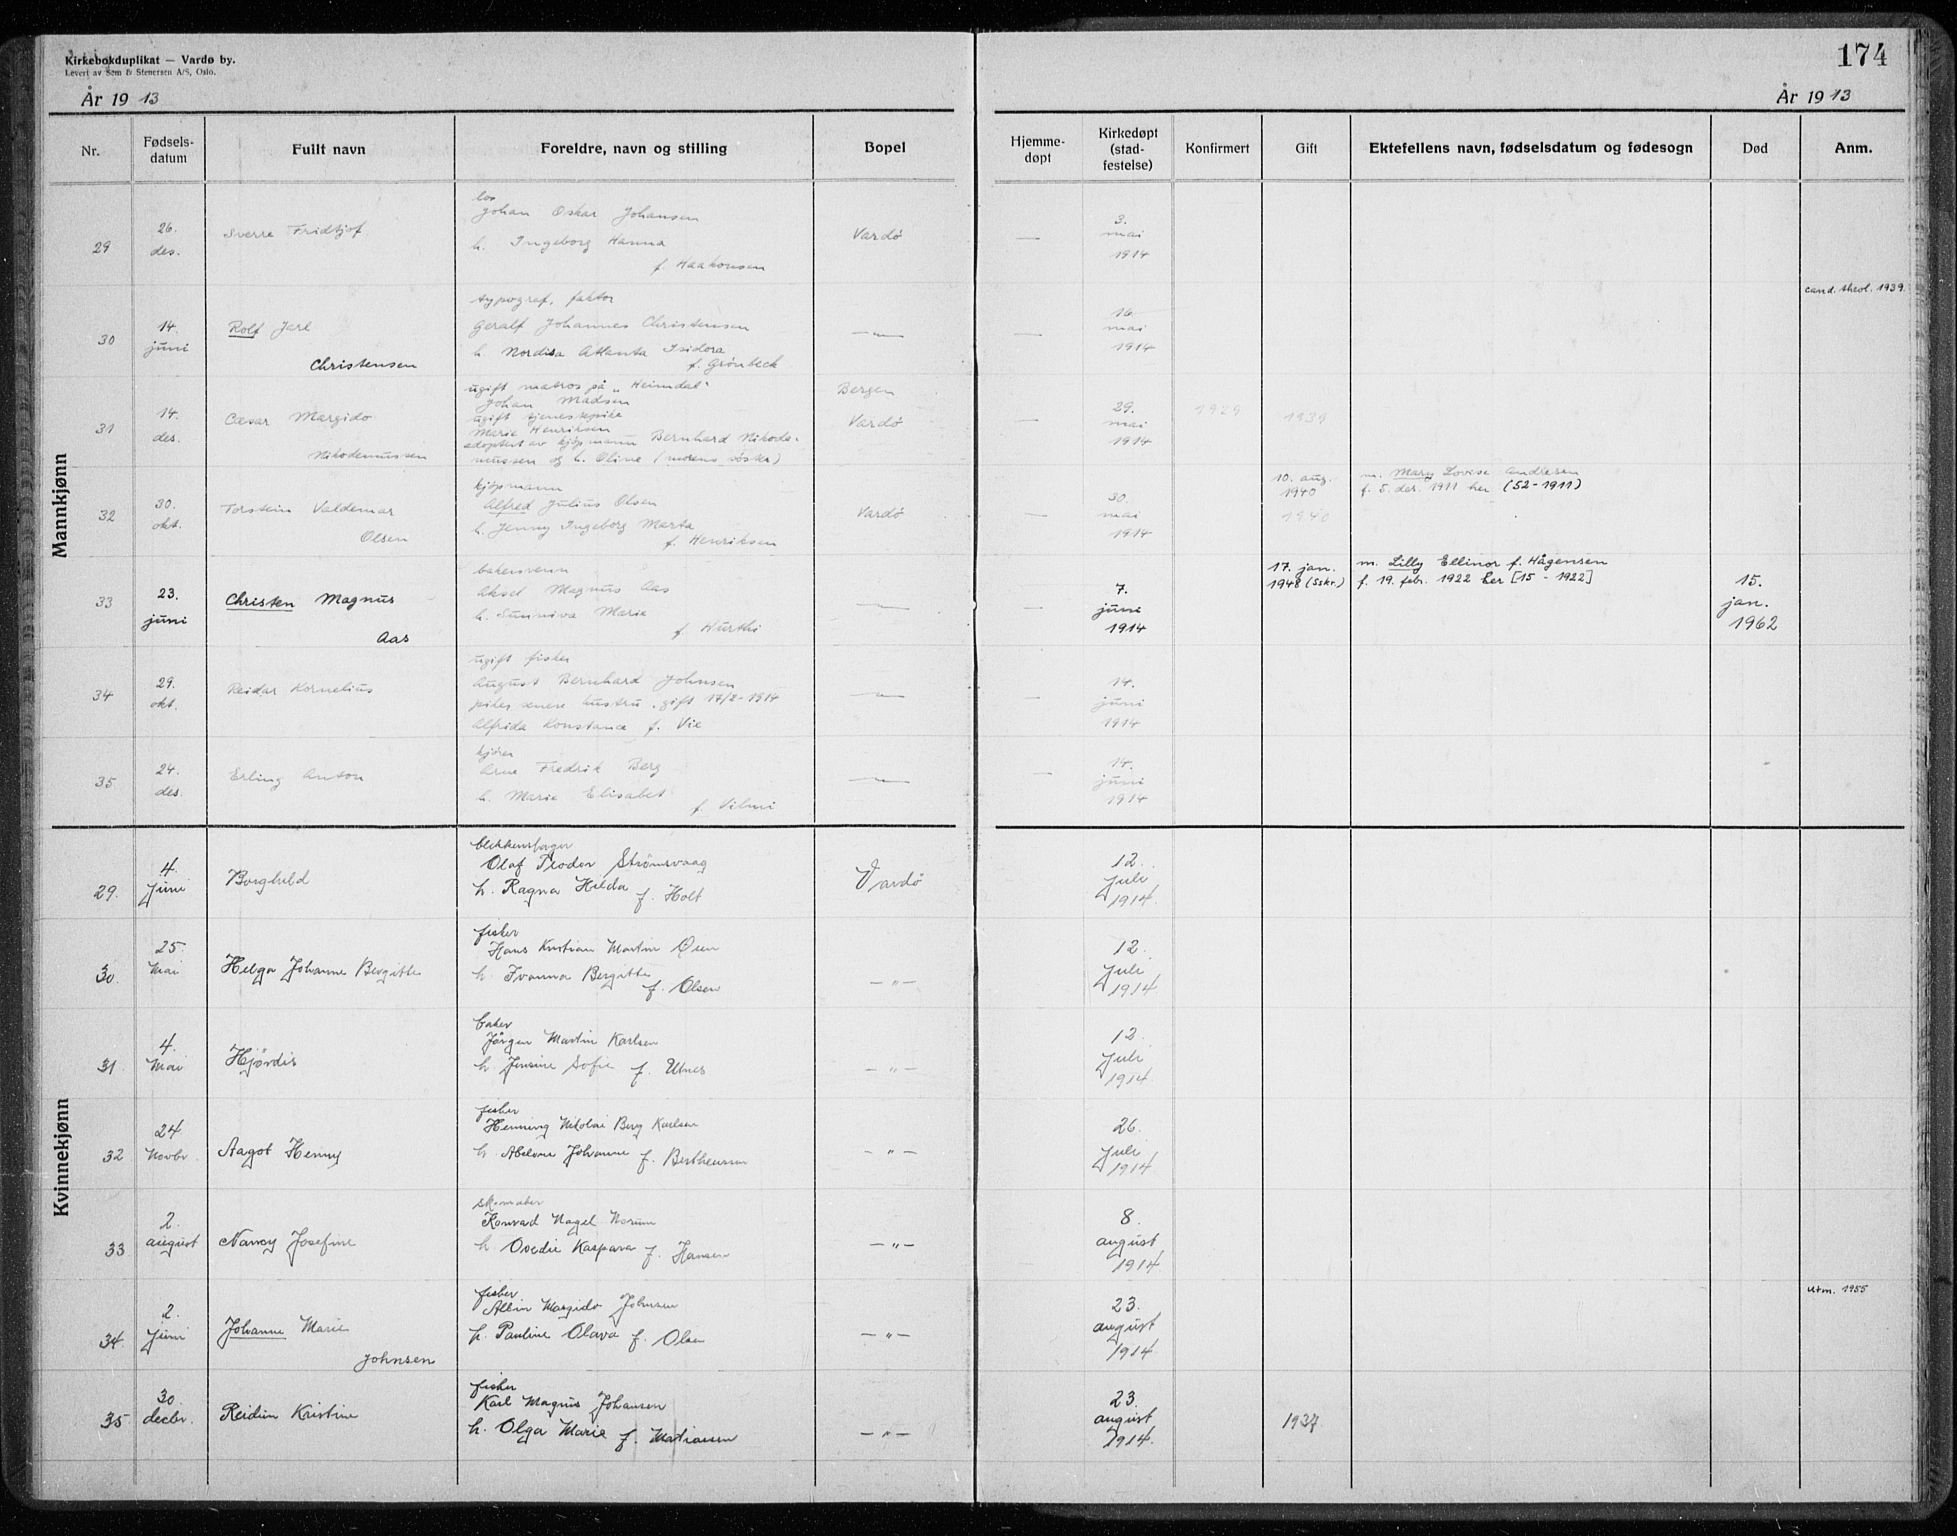 Kirkebokduplikat — Vardø by.
Levert av Sem & Stenersen A/S, Oslo.
År 19 13
174
År 19 13
Nr.
Fødsels-
datum
Fullt navn
Foreldre, navn og stilling
Bopel
Hjemme-
døpt
Kirkedøpt
(stad-
festelse)
Konfirmert
Gift
Ektefellens navn, fødselsdatum og fødesogn
Død
Anm.
Mannkjønn
29
26.
des.
Sverre Fridtjof
los
Johan Oskar Johansen
h. Ingeborg Hanna
f. Haakonsen
Vardö
—
3.
mai
1914
30
14.
juni
Rolf Jarl
Christensen
typograf, faktor
Geralf Johannes Christensen
h. Nordisa Atlanta Isidora
f. Grönbeck
—"—
—
16.
mai
1914
cand. theol. 1939.
31
14.
des.
Cæsar Margido
Nikodemussen
ugift matros på „Heimdal"
Johan Madsen
ugift tjenestepike
Marie Henriksen
adoptert av kjöpmann Bernhard Nikode-
mussen og h. Oline (morens söster)
Bergen
Vardö
—
29.
mai
1914
1929
1939
32
30.
okt.
Torstein Valdemar
Olsen
kjöpmann
Alfred Julius Olsen
h. Jenny Ingeborg Marta
f. Henriksen
Vardö
30.
mai
1914
10. aug.
1940
1940
m. Mary Lovise Andresen
f. 5. des. 1911 her (52-1911)
33
23.
juni
Christen Magnus
Aas
bakersvenn
Aksel Magnus Aas
h. Sunniva Marie
f. Hurthi
—"—
—
7.
juni
1914
17. jan.
1948 (Sskr.)
m. Lilly Ellinor f. Hågensen
f. 19. febr. 1922 her [15 - 1922]
15.
jan.
1962
34
29.
okt.
Reidar Kornelius
ugift fisker
August Bernhard Johnsen
pike, senere hustru, gift 17/2-1914
Alfrida Konstance f. Vie
—"—
—
14.
juni
1914
35
24.
des.
Erling Anton
kjörer
Arne Fredrik Berg
h. Marie Elisabet
f. Vilmi
—"—
—
14.
juni
1914
Kvinnekjønn
29.
4.
Juni
Borghild
blikkenslager
Olaf Teodor Strömsvaag
h. Ragna Hilda f. Holt
Vardö
12.
Juli
1914.
30.
25.
Mai
Helga Johanne Bergitte
fisker
Hans Kristian Martin Olsen
h. Ivanna Bergitte
f. Olsen
—"—
12.
Juli
1914
31.
4.
Mai
Hjördis
baker
Jörgen Martin Karlsen
h. Jensine Sofie f. Utnes
—"—
12
Juli
1914.
32
24
Novbr.
Aagot Henny
fisker
Henning Nikolai Berg Karlsen
h. Abelone Johanne f. Bertheussen
—"—
26.
Juli
1914
33
2.
august
Nancy Josefine
skomaker
Konrad Nagel Norum
h. Ovedie Kaspara f. Hansen
—"—
8.
august
1914.
34
2.
Juni
Johanne Marie
Johnsen
fisker
Albin Margido Johnsen
h. Pauline Olava f. Olsen
—"—
23.
august
1914
utm. 1955
35
30.
decbr.
Reidun Kristine
fisker
Karl Magnus Johansen
h. Olga Marie f. Matiassen
—"—
23.
august
1914.
1937